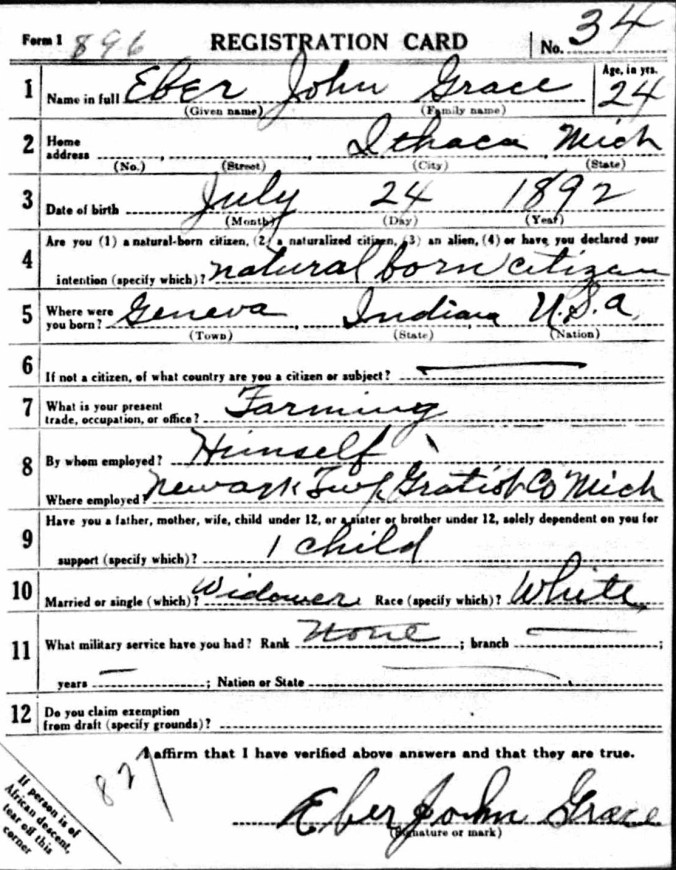 Form 1 896 REGISTRATION CARD No. 34
1 Name in full Eber John Grace Age, in yrs. 24
(Given name) (Family name)
2 Home address Ithaca Mich
(No.) (Street) (City) (State)
3 Date of birth July 24 1892
(Month) (Day) (Year)
4 Are you (1) a natural-born citizen, (2) a naturalized citizen, (3) an alien, (4) or have you declared your
intention (specify which)? natural born citizen
5 Where were you born? Geneva Indiana U.S.A.
(Town) (State) (Nation)
6 If not a citizen, of what country are you a citizen or subject?
7 What is your present trade, occupation, or office? Farming
8 By whom employed? Himself
Where employed? Newark Twp, Gratiot Co Mich
9 Have you a father, mother, wife, child under 12, or a sister or brother under 12, solely dependent on you for
support (specify which)? 1 child
10 Married or single (which)? Widower Race (specify which)? White
11 What military service have you had? Rank None ; branch ;
years ; Nation or State
12 Do you claim exemption from draft (specify grounds)?
I affirm that I have verified above answers and that they are true.
Eber John Grace
(Signature or mark)
If person is of
African descent,
tear off this
corner